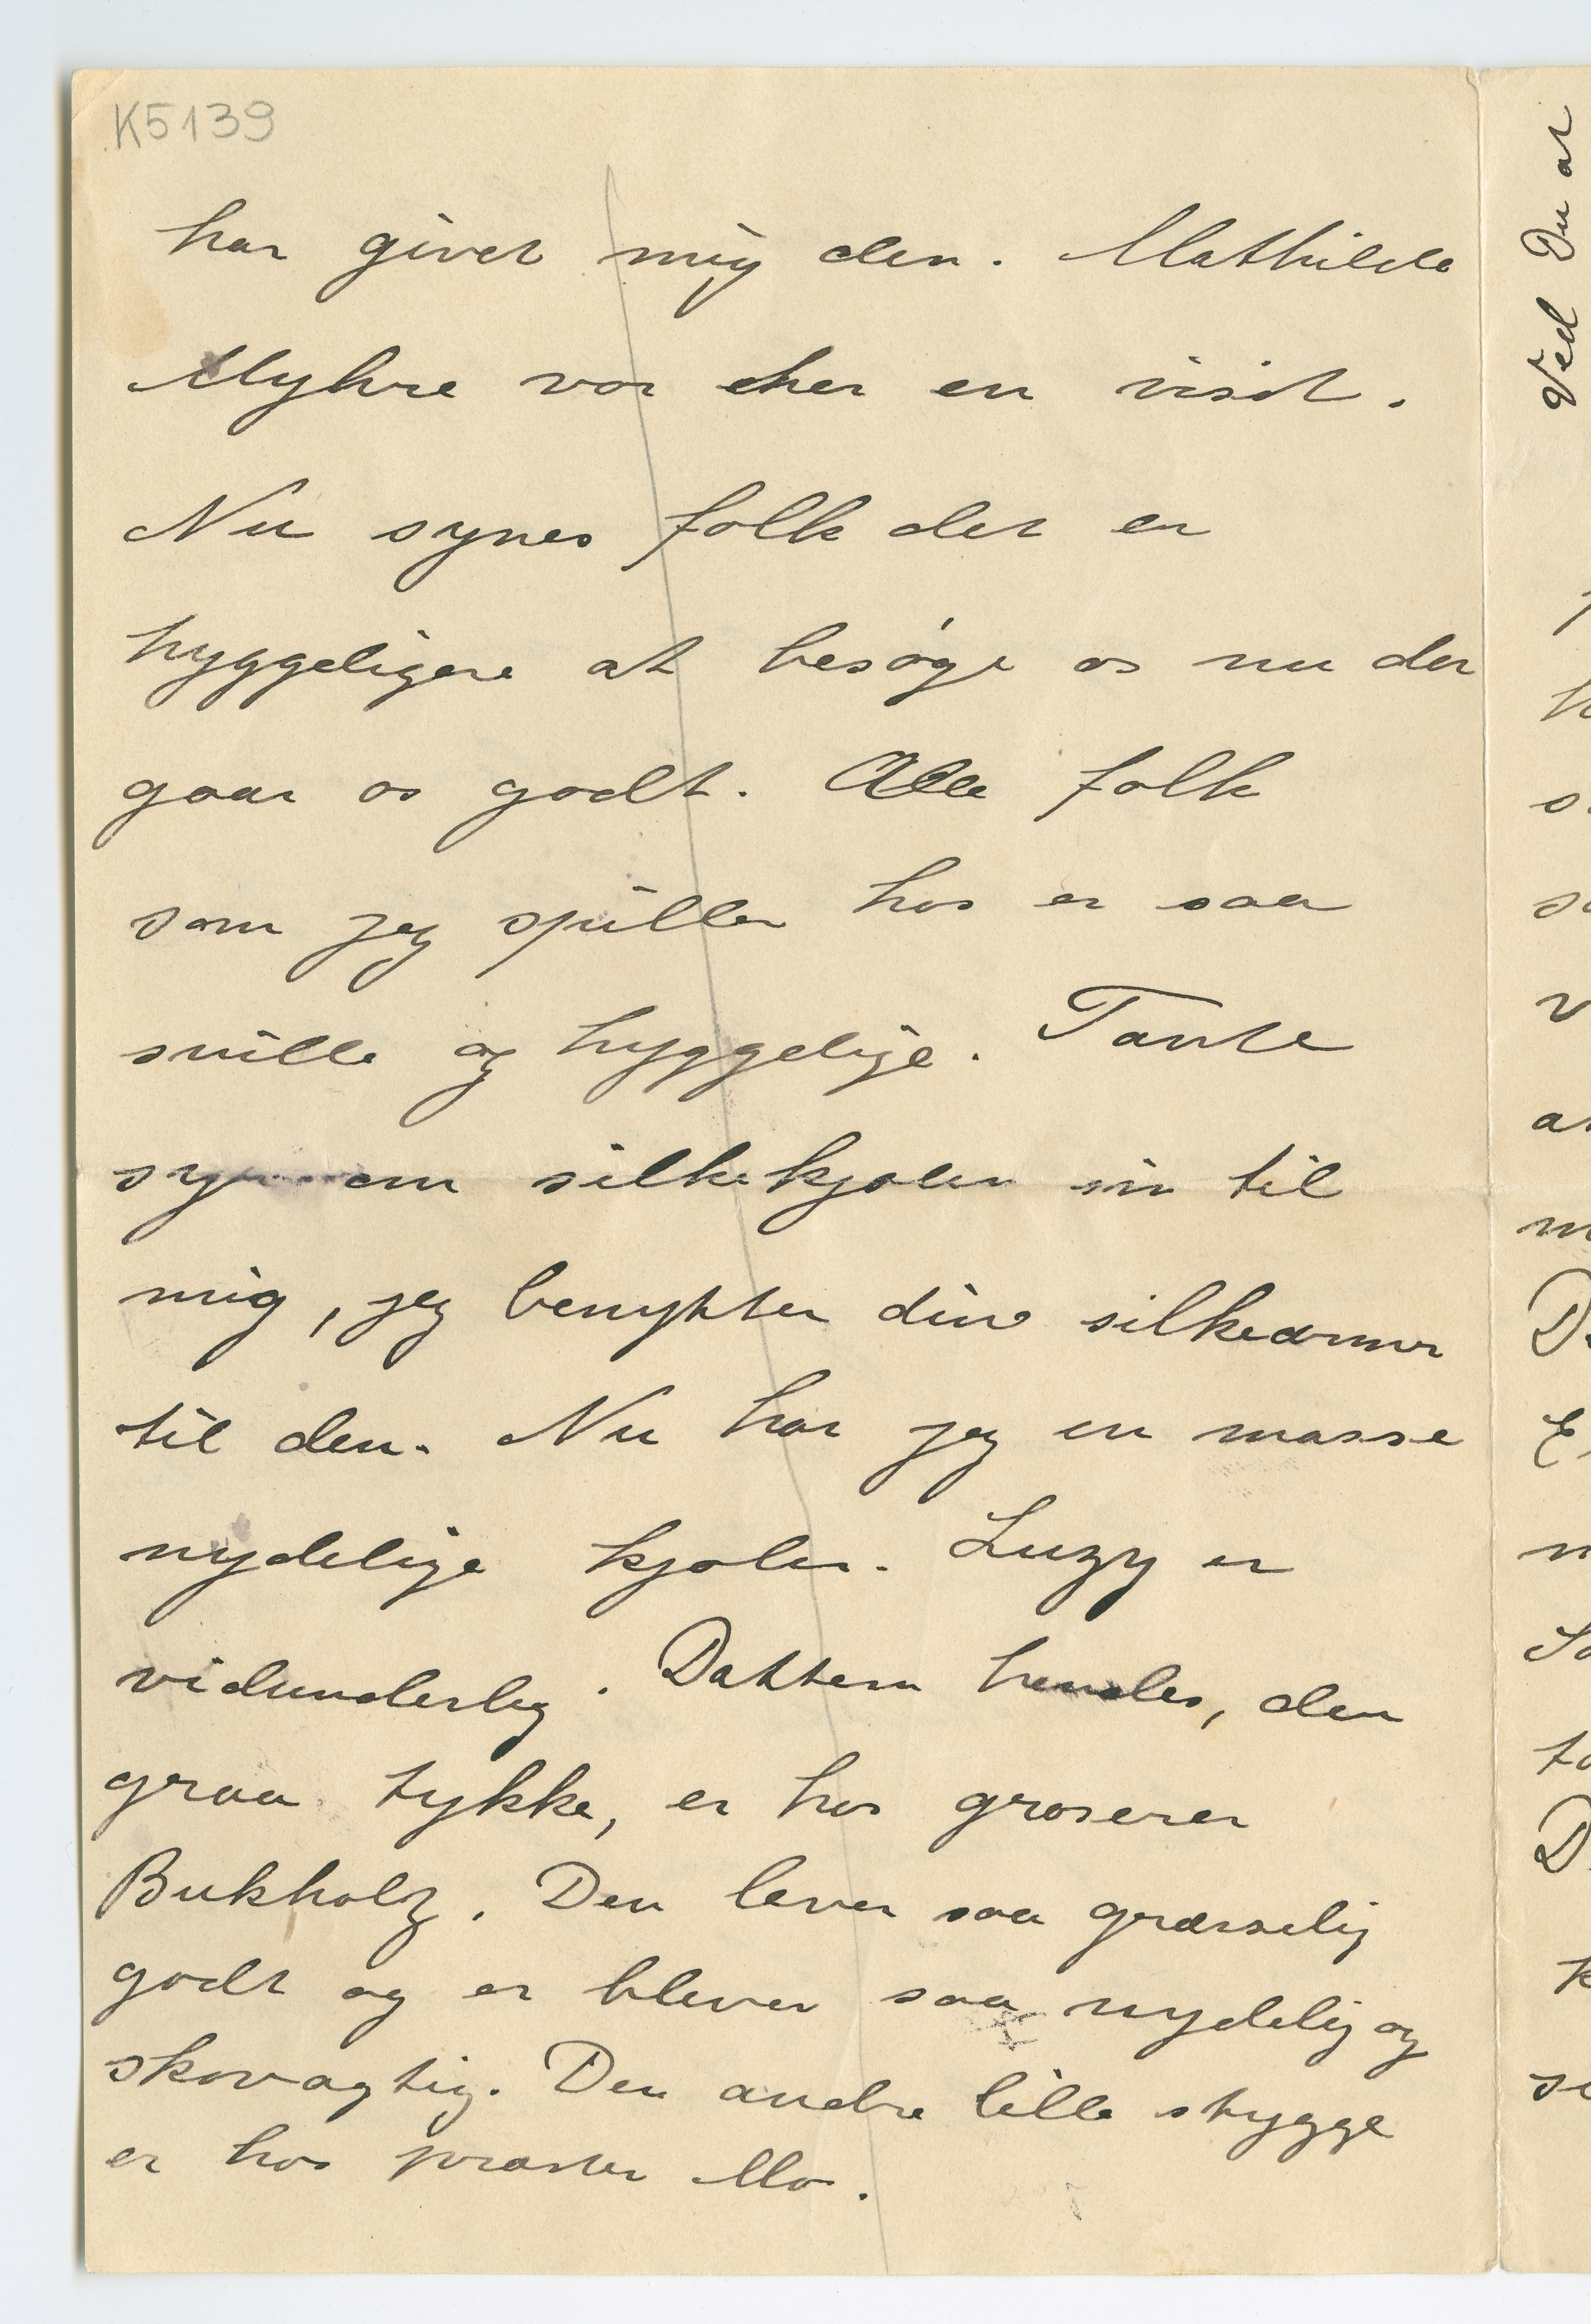 K5139
har givet mig den. Mathilde
Myhre var her en visit.
Nu synes folk det er
hyggeligere at besøge os nu der
gaar os godt. Alle folk
som jeg spiller hos er saa
snille og hyggelige. Tante
syr om silkekjolen sin til
mig, jeg benytter dine silkeærmer
til den. Nu har jeg en masse
nydelige kjoler. Luzy er
vidunderlig. Dattern hendes, den
graa tykke, er hos groserer
Bukholz. Den lever saa græsselig
godt og er blever saa nydelig og
skovagtig. Den andre lille stygge
er hos præsten Mo.
Ved Du at